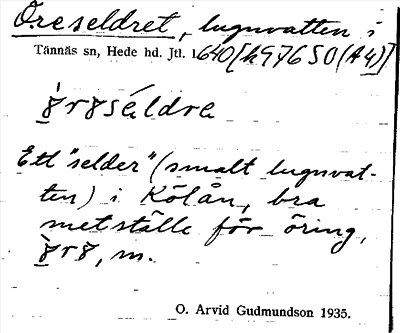 Öreseldret, lugnvatten i
Tännäs sn, Hede hd. Jtl. 1640[h976SO(A4)]
ȣ̀rȣséldra
Ett "selder" (smalt lugnvat-
ten) i Kölån, bra
metställe för öring,
ȣ̀rȣ, m.
O. Arvid Gudmundson 1935.